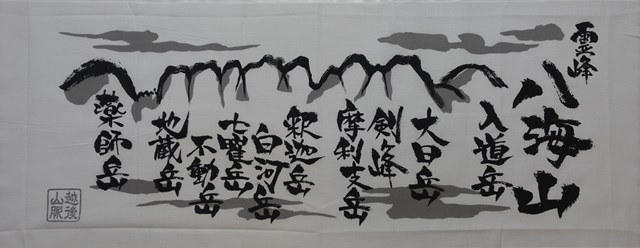 霊峰
八海山
入道岳
大日岳
剣峰
摩利支岳
釈迦岳
白河岳
七曜岳
不動岳
地蔵岳
薬師岳
越後
山脈